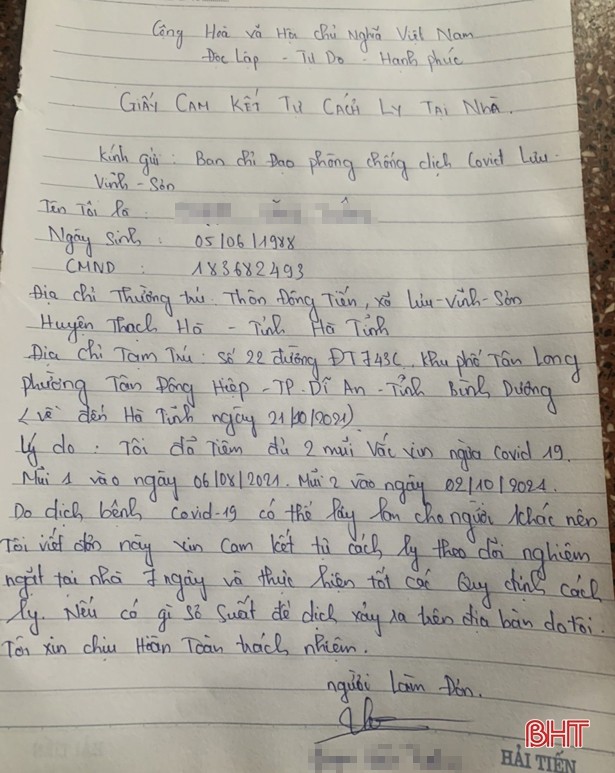 Cộng Hoà xã Hội chủ Nghĩa Việt Nam
Độc Lập - Tự Do - Hạnh phúc
GIẤY CAM KẾT TỰ CÁCH LY TẠI NHÀ.
Kính gửi : Ban chỉ Đạo phòng chống dịch Covid Lưu -
Vĩnh - Sơn
Tên Tôi là :
Ngày sinh : 05/06/1988
CMND : 183682493
Địa chỉ Thường trú : Thôn Đồng Tiến, xã Lưu - Vĩnh - Sơn
Huyện Thạch Hà - Tỉnh Hà Tĩnh
Địa chỉ Tạm Trú : Số 22 đường ĐT 743C. Khu phố Tân Long
phường Tân Đông Hiệp - TP. Dĩ An - Tỉnh Bình Dương
(về đến Hà Tĩnh ngày 21/10/2021)
Lý do : Tôi đã Tiêm đủ 2 mũi Vắc xin ngừa Covid 19.
Mũi 1 vào ngày 06/08/2021. Mũi 2 vào ngày 02/10/2021.
Do dịch bệnh Covid-19 có thể lây lan cho người khác nên
Tôi viết đơn này xin Cam kết tự cách ly theo dõi nghiêm
ngặt tại nhà 7 ngày và thực hiện tốt các Quy định cách
ly. Nếu có gì sơ suất để dịch xảy ra trên địa bàn do tôi.
Tôi xin chịu Hoàn Toàn trách nhiệm.
người Làm Đơn.
BHT
HẢI TIẾN